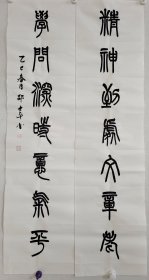 精神到處文章老
學問深時意氣平
乙巳春月